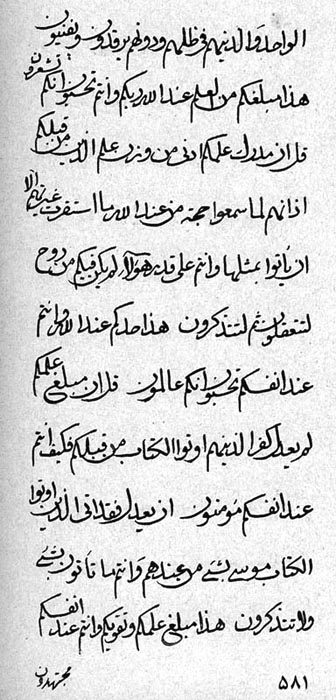 الواحد والذینهم فی ظلهم ودونهم یرقدون ویفنیون
هذا مبلغكم من العلم عند الله ربكم وانتم تحسبون انكم تشعرون
قل ان مدارك علمكم ادنی من وزن علم الذین من قبلكم
اذ انهم لما سمعوا حجة من عند الله ما استقرت
ان یأتوا بمثلها وانتم علی قدر هولاء لم یكن فیكم من روح
لتتعقلون ثم لتتذكرون هذا حدكم عند الله وانتم
عند انفسكم تحسبون انكم عالمون قل ان مبلغ علمكم
لم یعدل كفر الذینهم اوتوا الكتاب من قبلكم فكیف انتم
عند انفسكم مؤمنون ان یعدل فقد اتی الذین اوتوا
الكتاب موسی بشیء من عندهم وانتم ما تأتون بشیء
ولا تتذكرون هذا مبلغ علمكم وتقویكم وانتم عند انفسكم
مجتهدون
۵۸۱